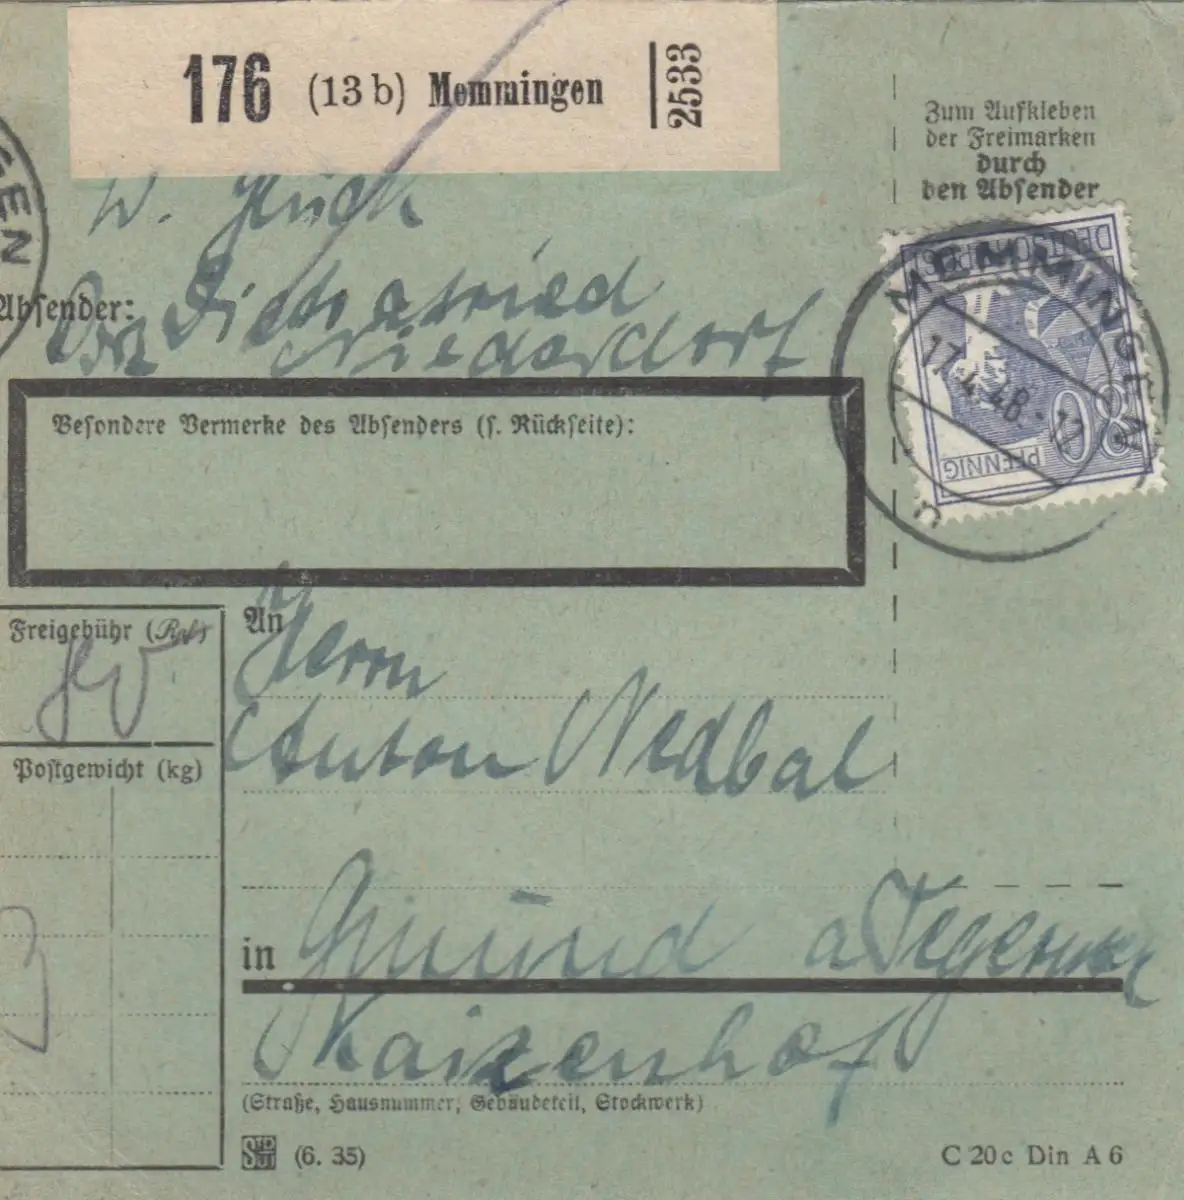 176 (13b) Memmingen 2533
Zum Aufkleben
der Freimarken
durch
den Absender
W. Glück
Absender:
Dietratried
Niederdorf
DEUTSCHE POST
80 PFENNIG
MEMMINGEN
17.4.48.-17
n
GEN
Besondere Vermerke des Absenders (s. Rückseite):
Freigebühr (Rpf)
80
Postgewicht (kg)
3
An
Herrn
Anton Nedbal
in Gmünd a Tegernsee
Kaizenhof
(Straße, Hausnummer, Gebäudeteil, Stockwerk)
(6. 35)
C 20c Din A 6